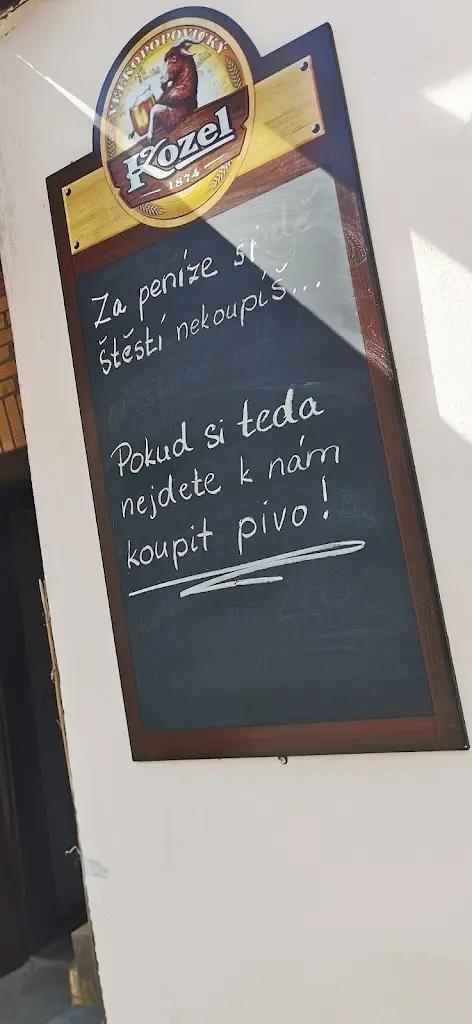 VELKOPOPOVICKÝ
Kozel
1874
Za peníze si
štěstí nekoupíš...
Pokud si teda
nejdete k nám
koupit pivo!